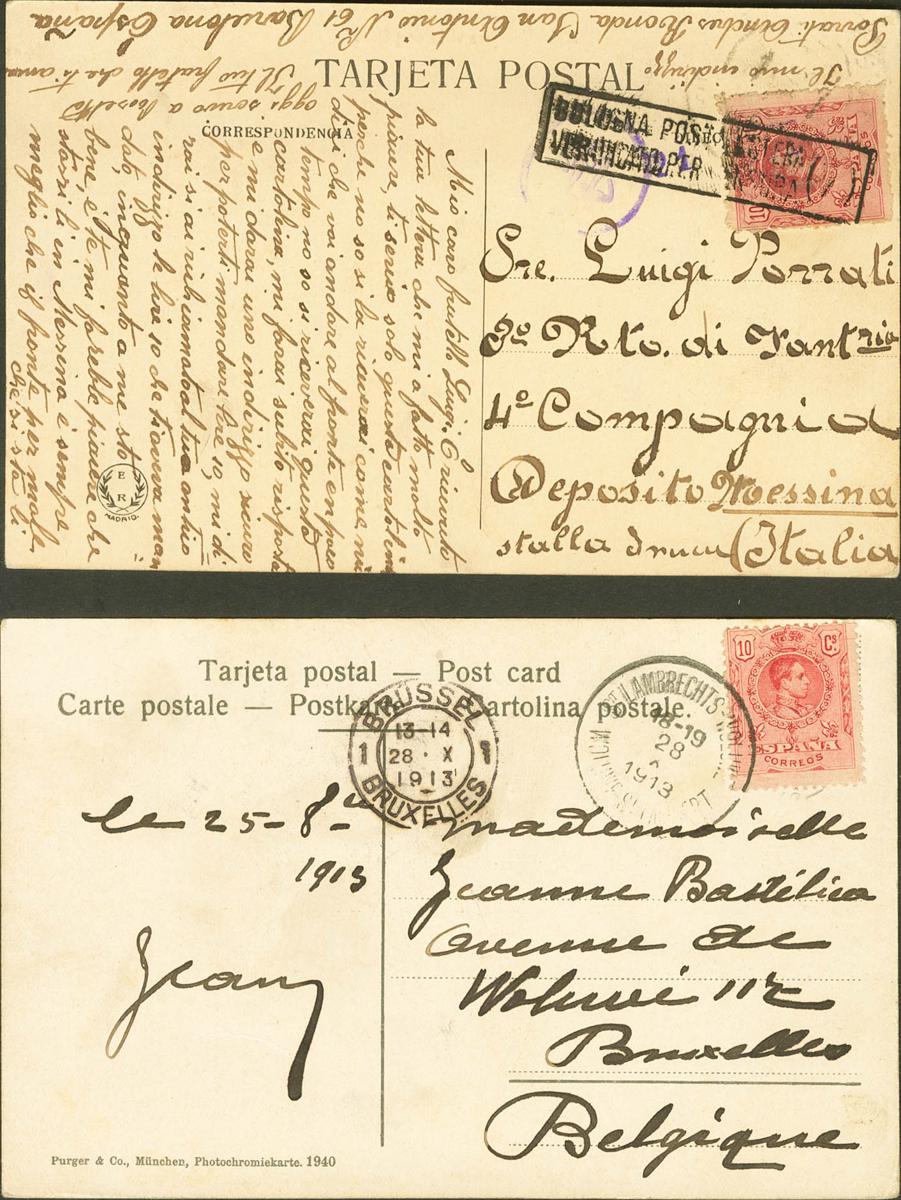 Porrati Andres Ronda San Antonio Nº 61 Barcelona España
Il mio indirizzo
TARJETA POSTAL
CORRESPONDENCIA
BOLOGNA POSTA ESTERA
VERIFICATO PER CENSURA ( )
10
Mio caro fratello Luigi, Ricevuto
la tua lettera che mi a fatto molto
piacere, ti scrivo solo questa cartolina
perche no so si la riceverai come mi
dici che vai andare al fronte en poco
tempo no so si riceverai questa
cartolina, mi farai subito risposta
e mi darai uno indirizzo sicuro
per poterti mandare lire 10, mi di
rai si ai ritirato al tuo antico
indirizzo le lire 10 che ti aveva man
dato, inquanto a me sto
bene, e te mi farebe piacere che
stassi li in Messina e sempre
meglio che il fronte per male
che si stia li.
oggi scrivo a
Il tuo fratello che ti ama
E R
MADRID.
Sre. Luigi Porrati
3º Rto. di Fantria
4º Compagnia
Deposito Messina
stalla
(Italia
Tarjeta postal — Post card
Carte postale — Postkarte — Cartolina postale.
BRUSSEL
1 13-14 1
28 · X
1913
BRUXELLES
LAMBRECHTS-WOLUWE
18-19
28
X
1913
10 Cs
ESPAÑA
CORREOS
le 25-8-
1913
Jean
Mademoiselle
Jeanne Bastélica
avenue de
Woluwé 112
Bruxelles
Belgique
Purger & Co., München, Photochromiekarte. 1940